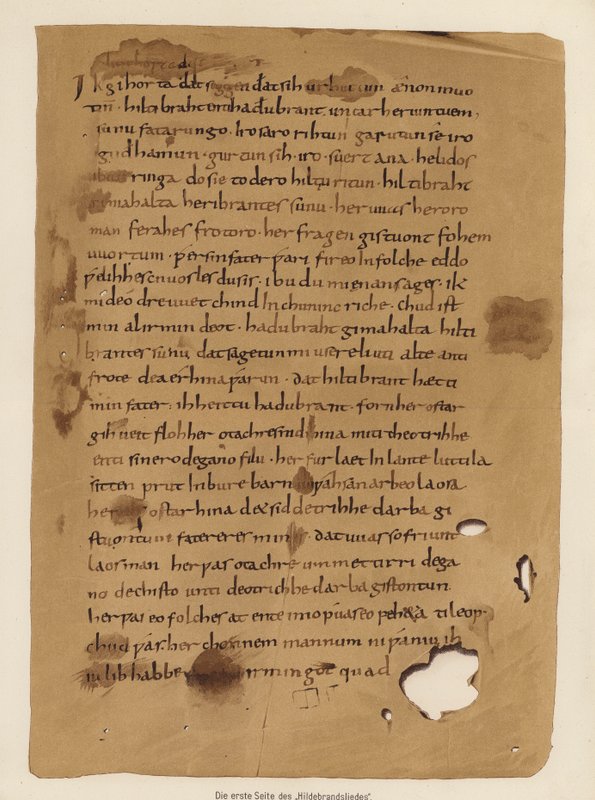 Ik gihorta đat seggen đat sih urhettun ænon muo
tin · hiltibraht enti hađubrant · untar heriun tuem,
sunu fatarungo · iro saro rihtun garutun se iro
gudhamun · gurtun sih · iro · suert ana · helidos
ubar ringa do sie to dero hiltu ritun · hiltibraht
gimahalta heribrantes sunu · her uuas heroro
man ferahes frotoro · her fragen gistuont fohem
uuortum · ƿer sin fater ƿari fireo In folche eddo
ƿelihhes cnuosles du sis · ibu du mi enan sages · ik
mideo dre uuet chind In chuninc riche · chud ist
min al irmin deot · hadubraht gimahalta hilti
brantes sunu dat sagetun mi usere liuti alte anti
frote dea erhina ƿarun · dat hiltibrant hætti
min fater · ih heittu hadubrant · forn her ostar
gihueit floh her otachres nid hina miti theotrihhe
enti sinero degano filu · her fur laet In lante luttila
sitten prut In bure barn unƿahsan arbeo laosa
her&t ostar hina d&sid detrihhe darba gi
stuontum fatereres mines · dat uuas so friunt
laos man her ƿas otachre ummet tirri dega
no dechisto unti deotrichhe darba gistontun
her ƿas eo folches at ente imo ƿas eo peh&a ti leop ·
chud ƿas her chonnem mannum ni ƿaniu ih
iu lib habbe irmingot quad
Die erste Seite des „Hildebrandsliedes".